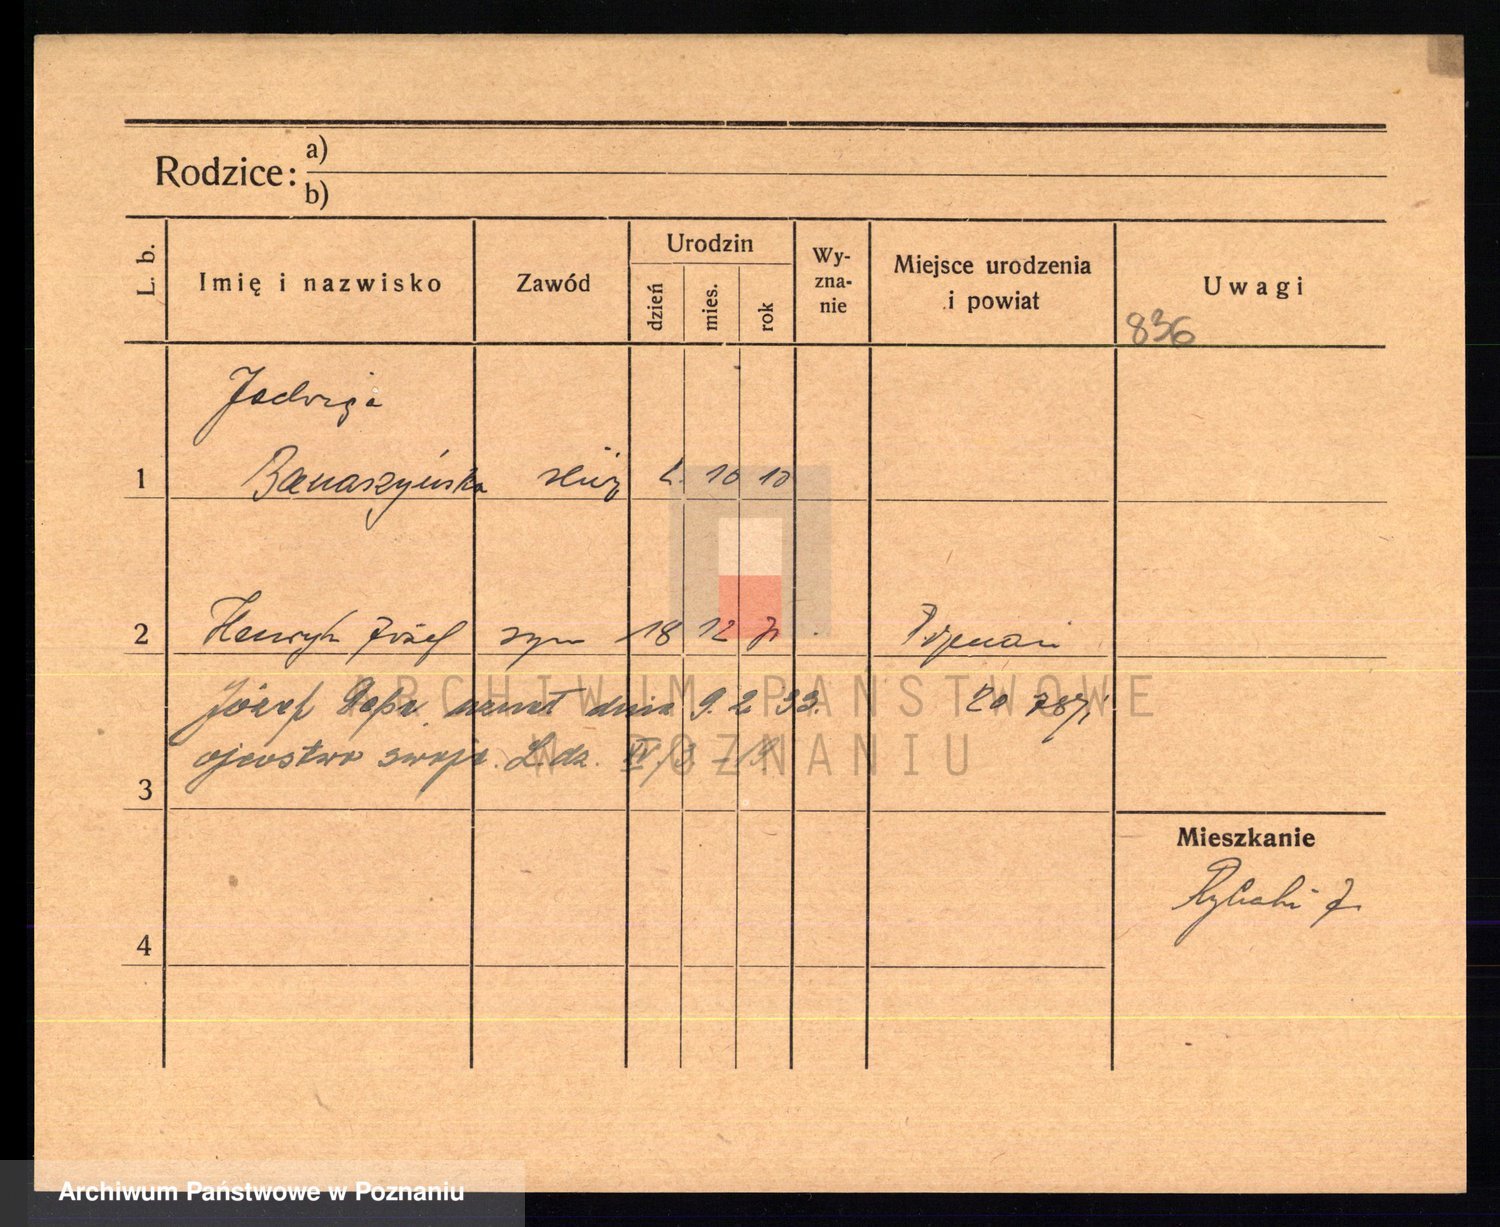 Rodzice: a)
b)
L. b.
Imię i nazwisko
Zawód
Urodzin
dzień
mies.
rok
Wy-
zna-
nie
Miejsce urodzenia
i powiat
Uwagi
836
Jadwiga
1 Banaszyńska służ 2. 10 10
2 Henryk Józef syn 18 12 Poznań
Józef uznał dnia 9. 2 33.
ojcostwo swoje. L.dz. IV/3
3
Mieszkanie
4
ARCHIWUM PAŃSTWOWE
W POZNANIU
Archiwum Państwowe w Poznaniu